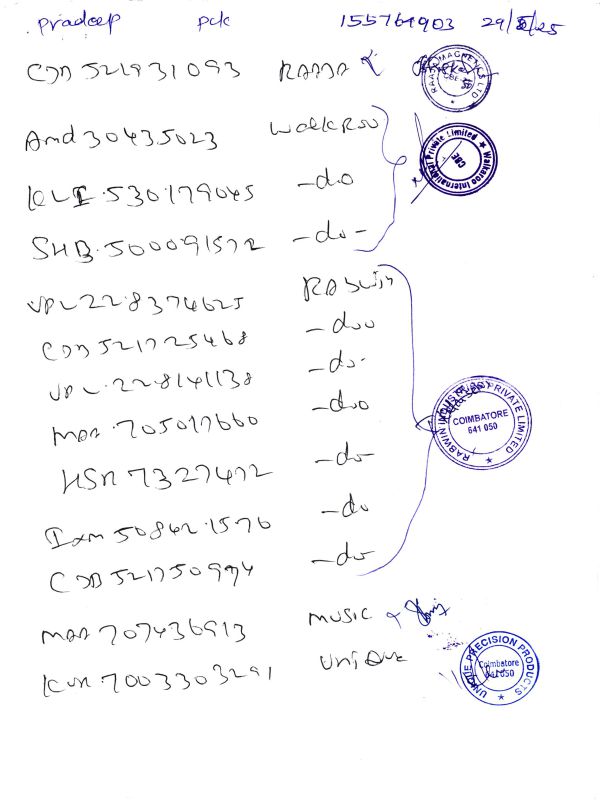 pradeep pck 155764903 29/5/25
CDB 521931093 RAABA
Amd 30435023 Walkroo
KLI.530179045 -do
SHB.500091572 -do-
VPL 228374625 RABwin
CDB 521725468 -do
VPL.228141138 -do-
MAA.705017660 -do
HSR 7327472 -do-
Ixm 508421576 -do
CDB 521750974 -do-
MAA 707436913 MUSIC
KUR.7003303291 UNiQUE
RAABA MAGNETICS LTD
Walkaroo International Private Limited
CBE
RABWIN INDUSTRIES PRIVATE LIMITED
COIMBATORE
641 050
UNIQUE PRECISION PRODUCTS
Coimbatore
641 050